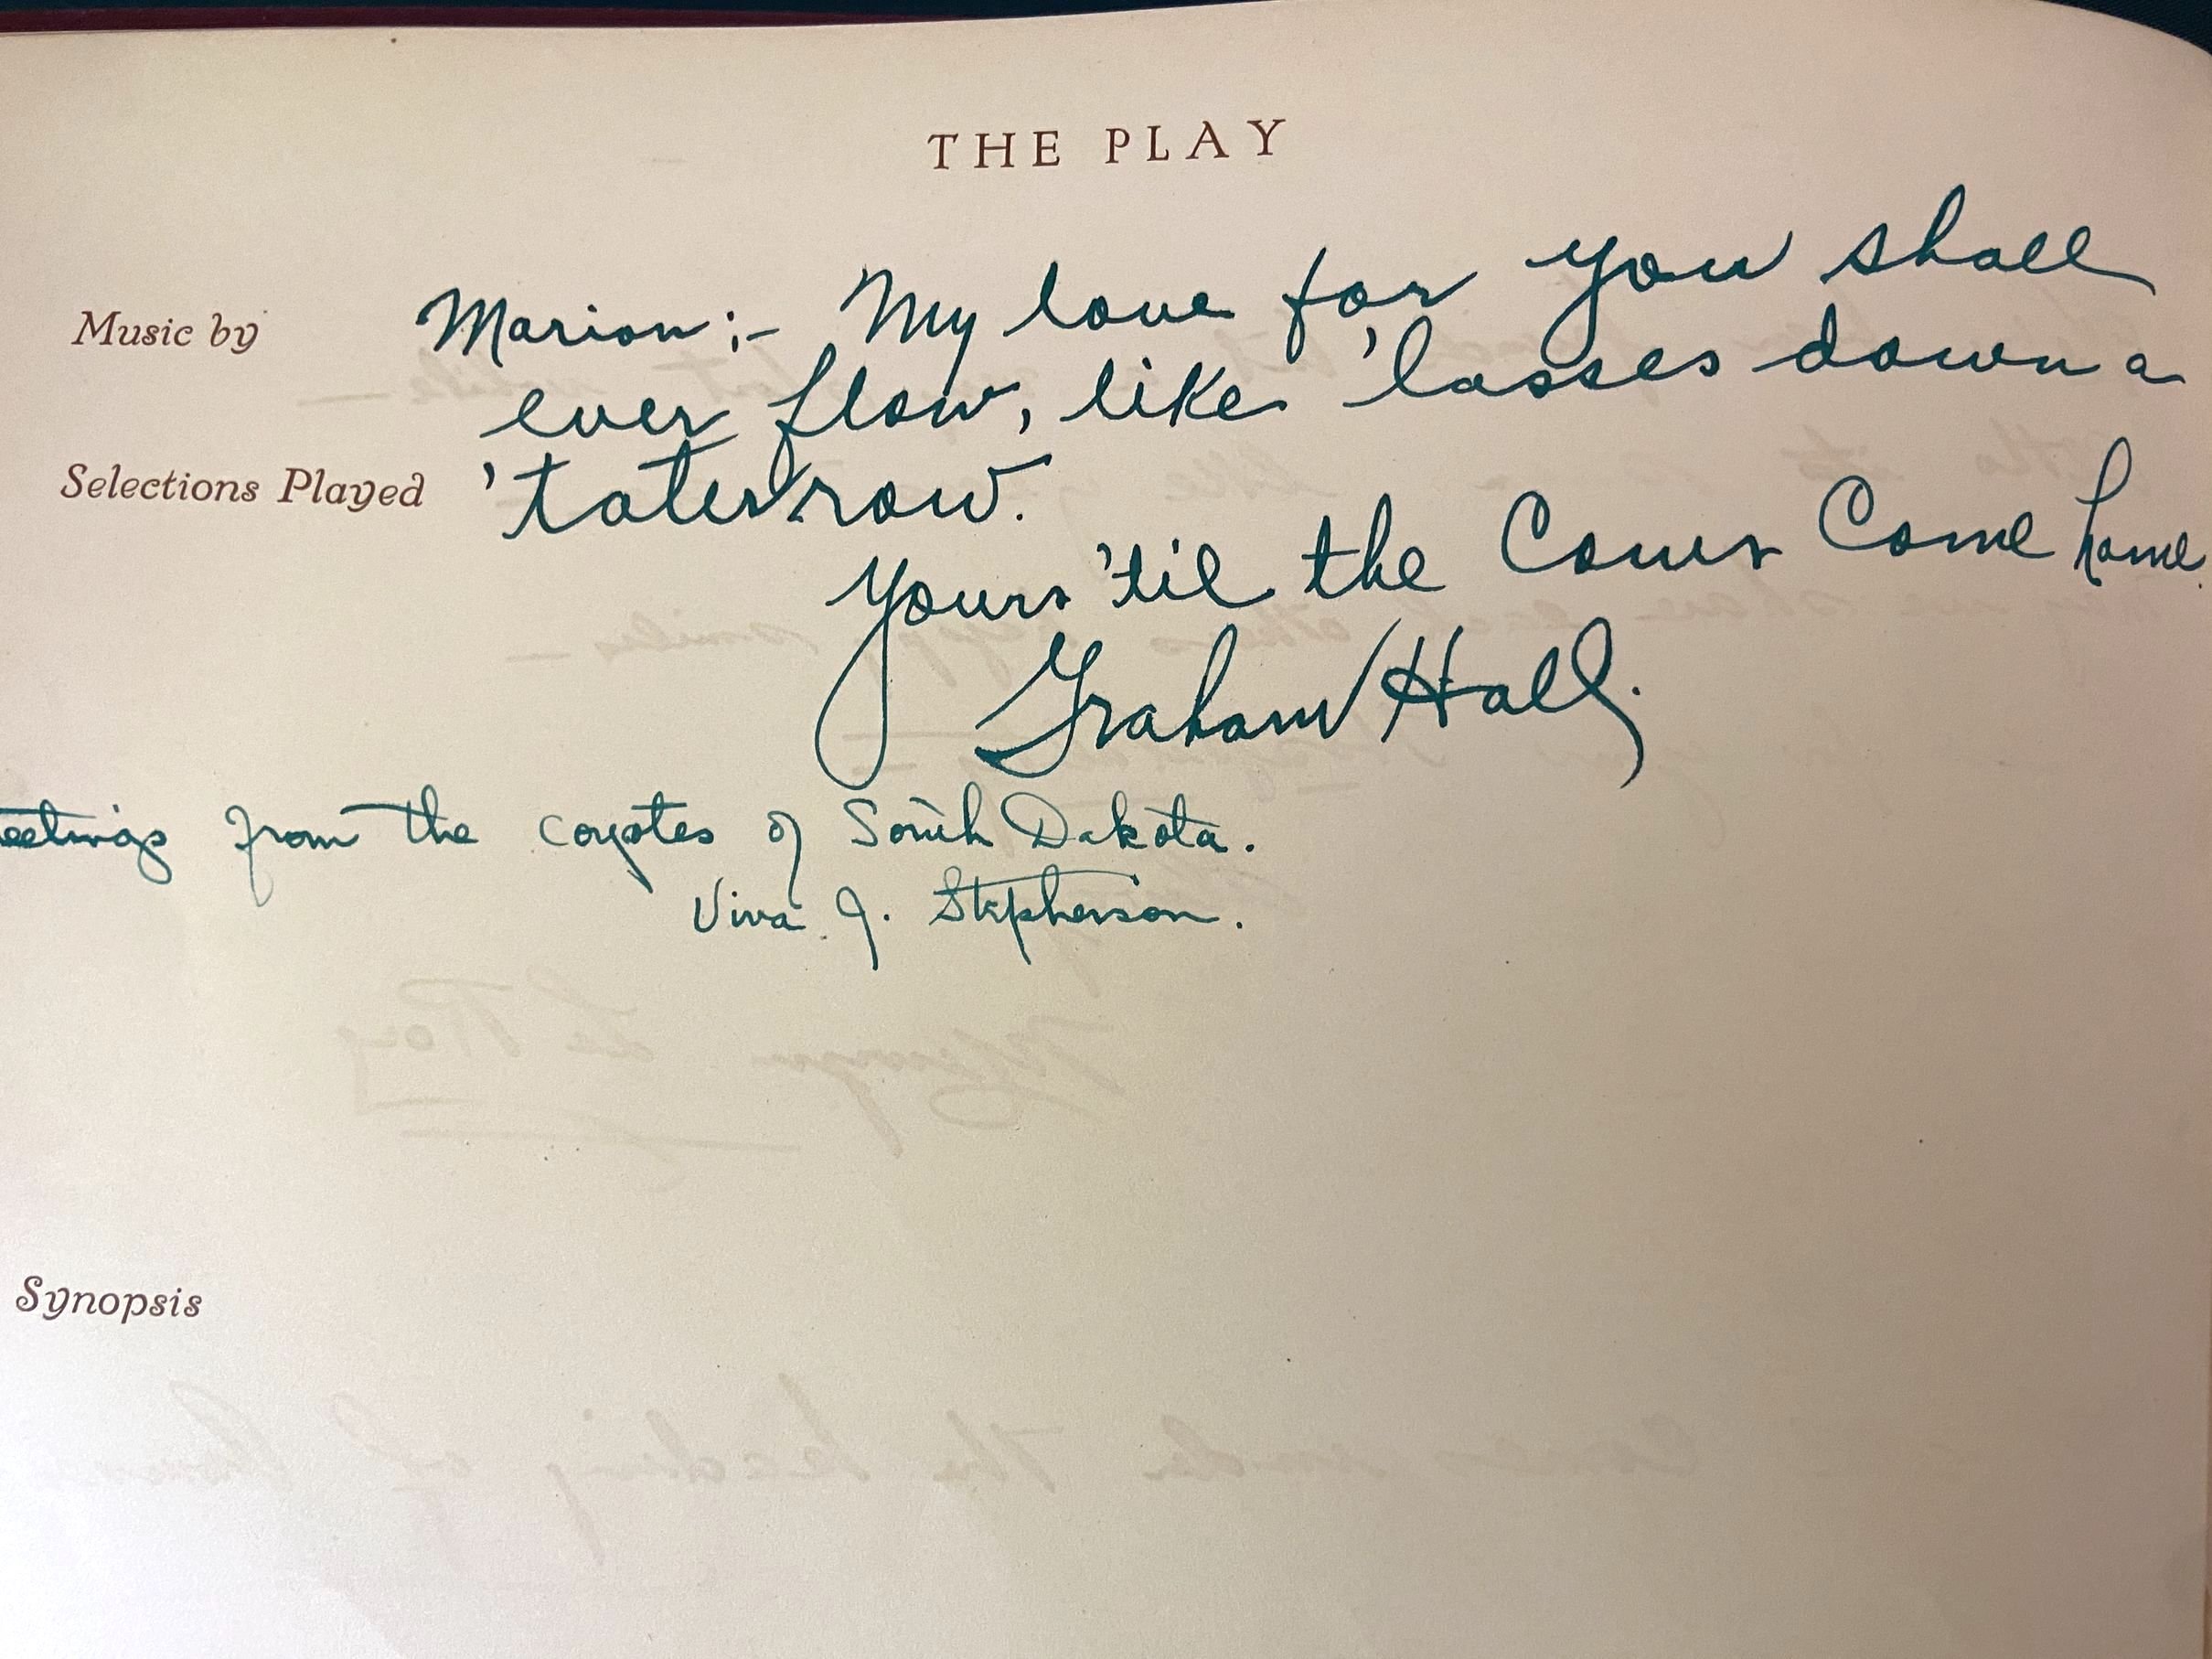 THE PLAY
Music by
Marion:- My love for you shall
ever flow, like 'lasses down a
Selections Played
'tater row.
Yours 'til the Cows Come home.
Graham Hall.
eetings from the coyotes of South Dakota.
Viva J. Stephenson.
Synopsis